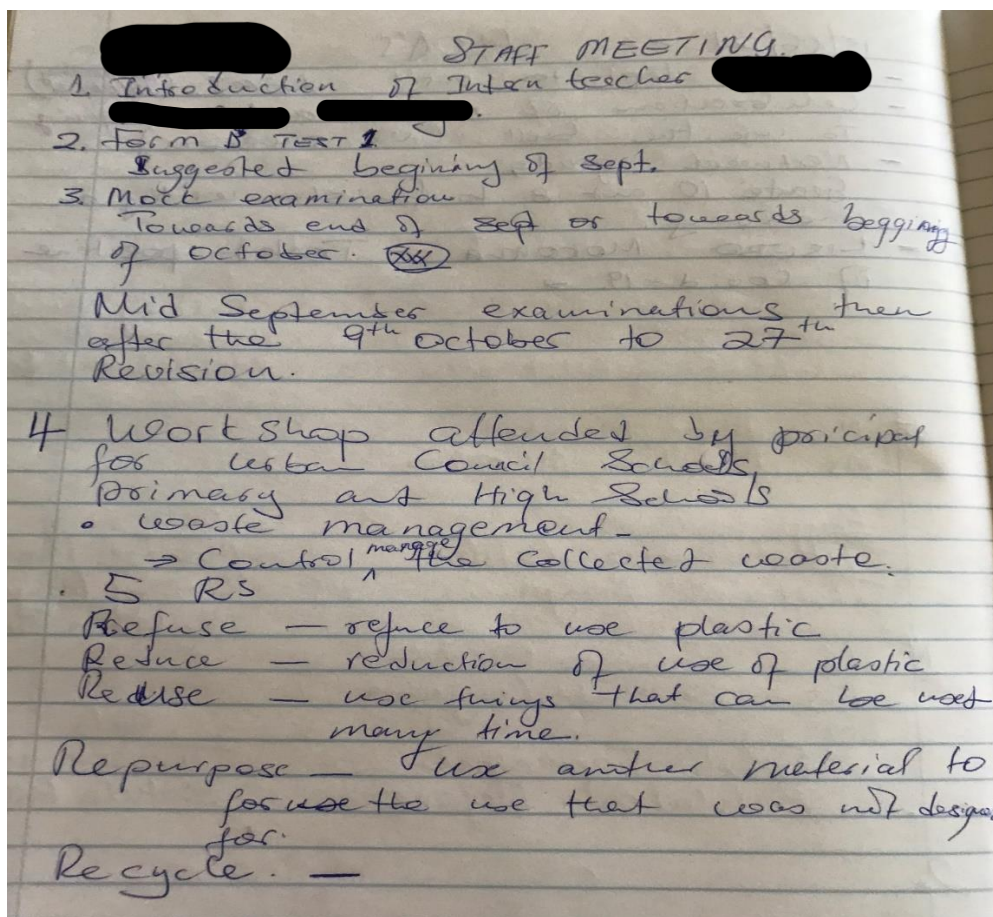 STAFF MEETING.
1. Introduction of Intern teacher
2. Form B TEST 1
Suggested begining of sept.
3. Mock examination
Towards end of sept or towards beggining
of october.
Mid September examinations, then
after the 9th october to 27th
Revision.
4 Workshop attended by pricipal
for urban Council Schools,
primary and High Schools
• waste management -
→ Control manage the collected waste.
. 5 RS
Refuse - refuce to use plastic
Reduce - reduction of use of plastic
Reuse - use things that can be used
many time.
Repurpose - use another material to
for the use that was not design
for.
Recycle. -